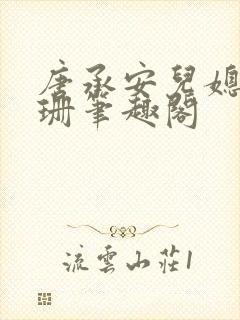 唐承安兒媳
珊筆趣閣
流雲山莊1